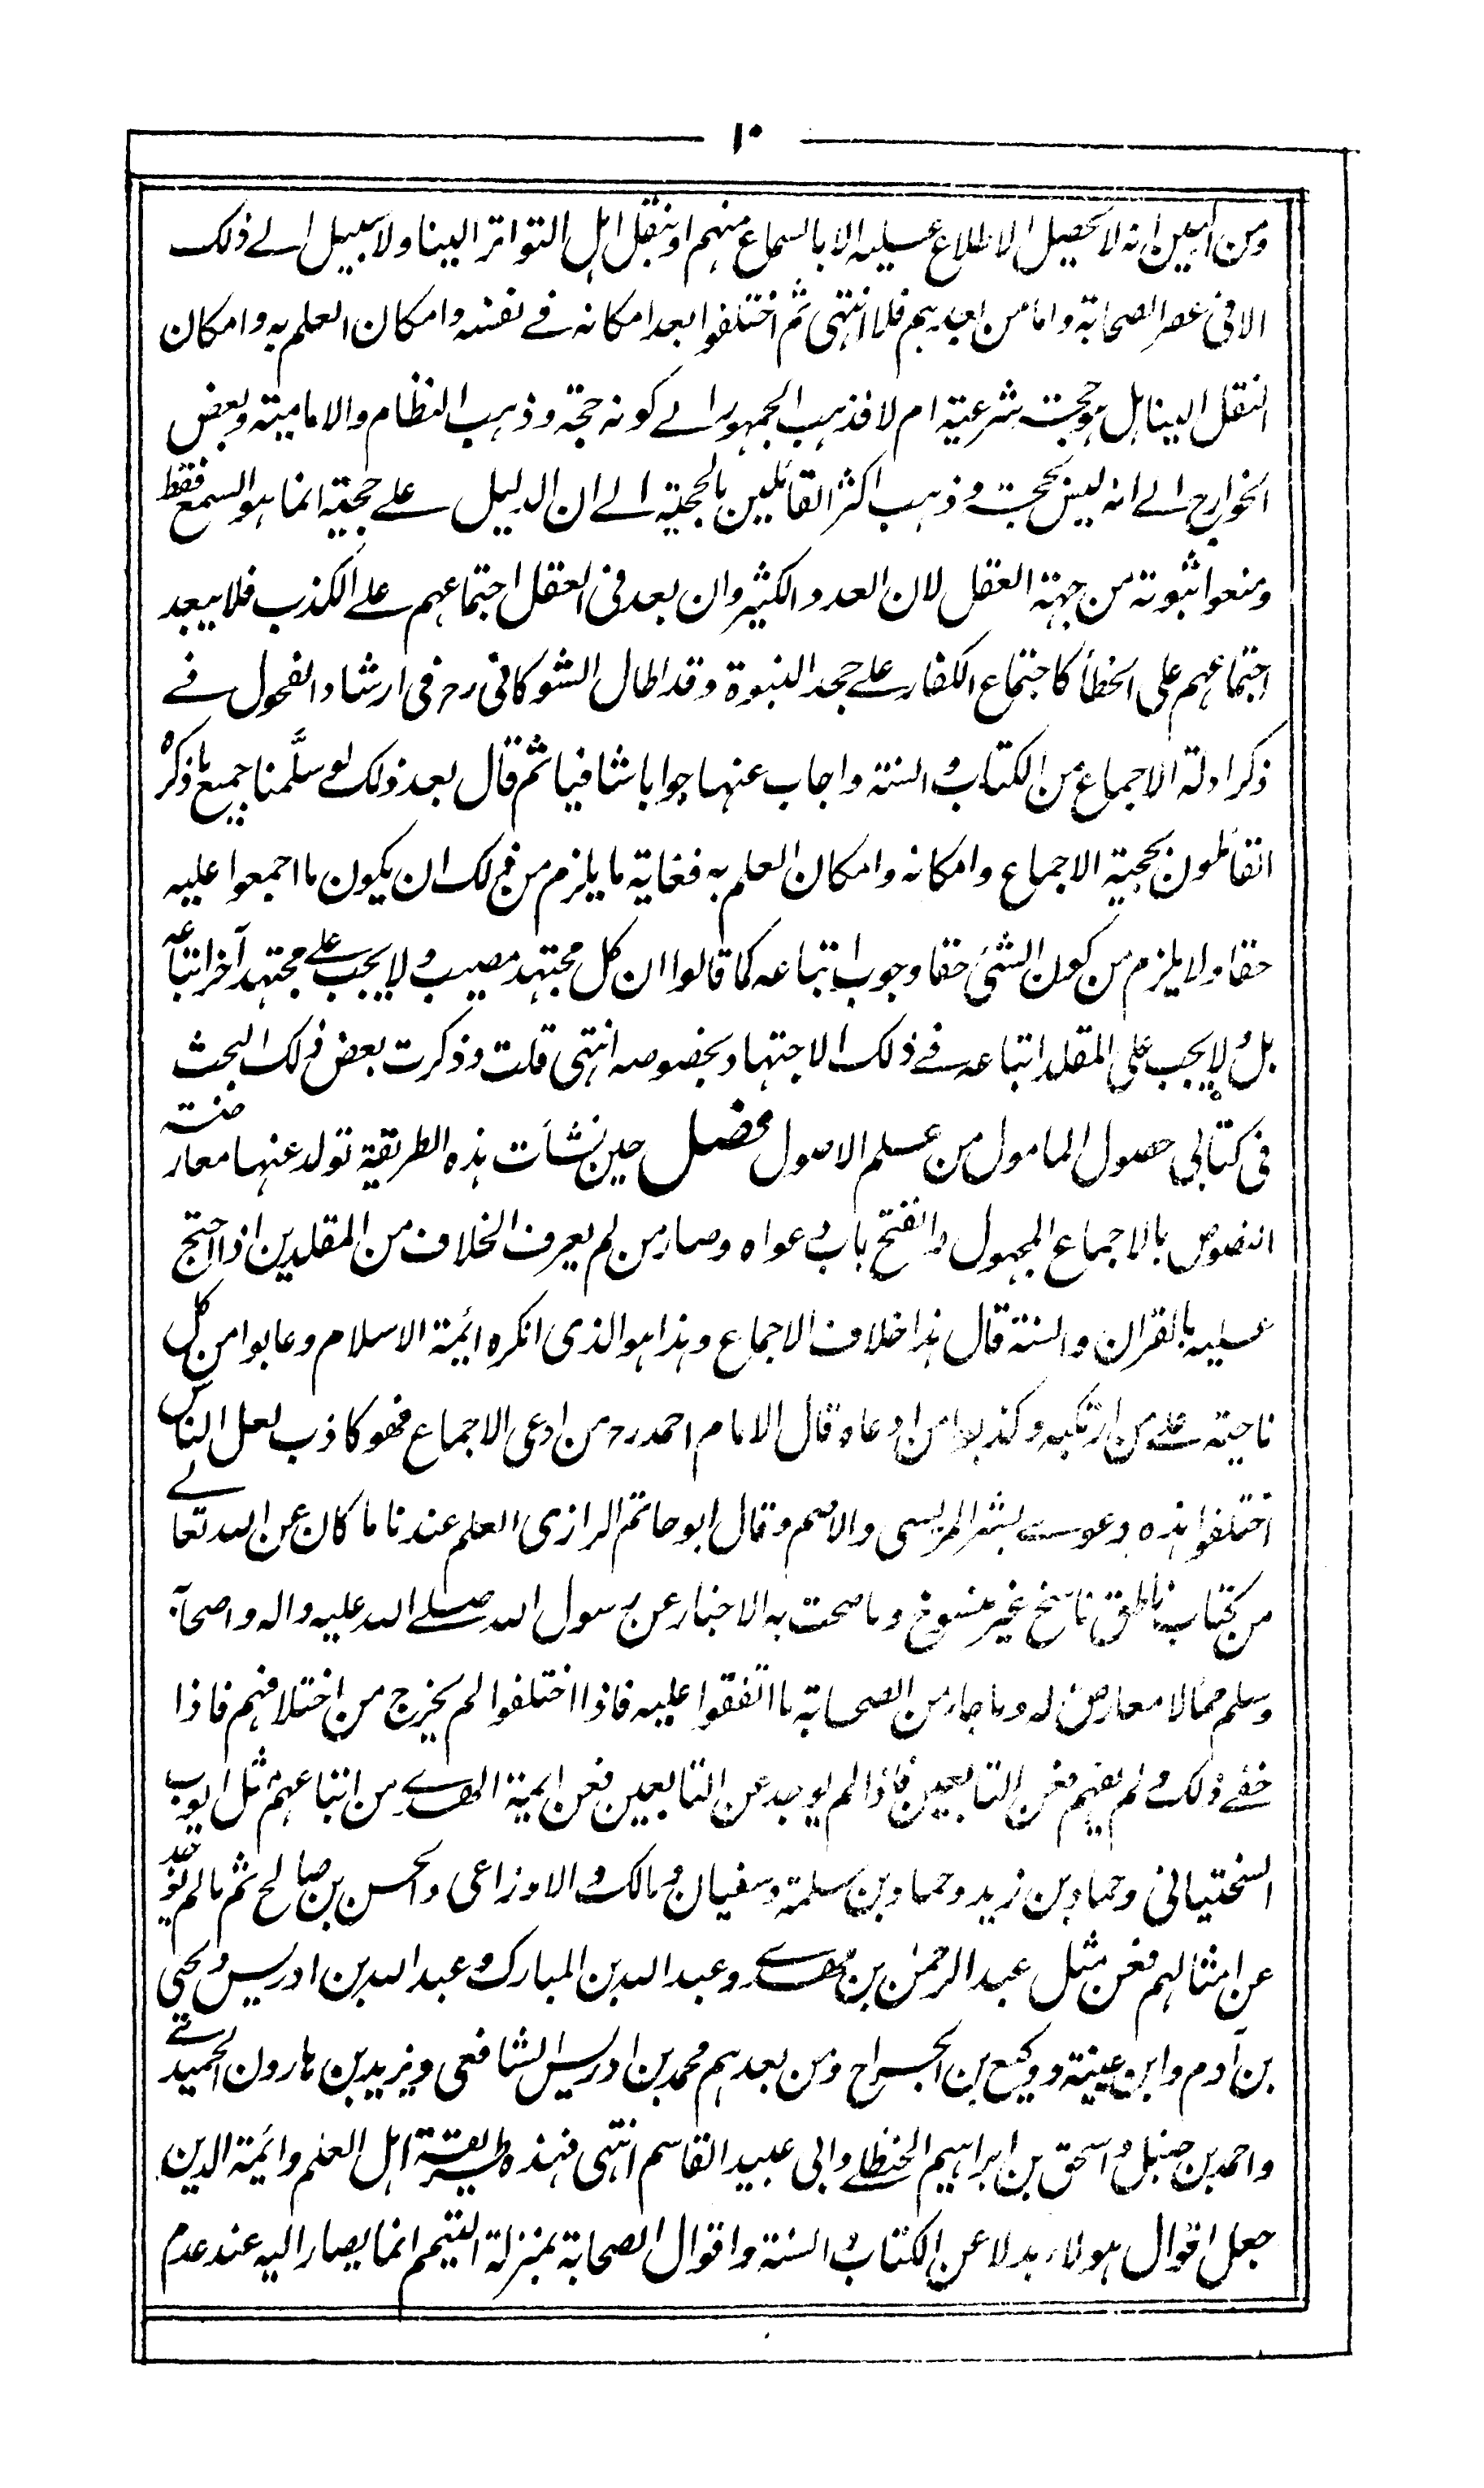 ١٠
ومن البين انه لا يحصيل الاطلاع عليه الا بالسماع منهم او بنقل اهل التواتر الينا ولا سبيل الے ذلك
الا فی عصر الصحابة واما من بعدهم فلا انتهى ثم اختلفوا بعد امكانه فے نفسه وامكان العلم به وامكان
النقل الينا هل هو حجت شرعية ام لا فذهب الجمهور الے كونه حجة وذهب النظام والامامية وبعض
الخوارج الے انه ليس بحجت وذهب اكثر القائلين بالحجية الے ان الدليل علے حجية انما هو السمع فقط
ومنعوا ثبوته من جهة العقل لان العدد الكثير وان بعد فى العقل اجتماعهم علے الكذب فلا يبعد
اجتماعهم على الخطأ كاجتماع الكفار علے جحد النبوة وقد اطال الشوكانى رح فى ارشاد الفحول فے
ذكر ادلة الاجماع من الكتاب والسنة واجاب عنها جوابا شافيا ثم قال بعد ذلك لو سلَّمنا جميع ما ذكره
القائلون بحجية الاجماع وامكانه وامكان العلم به فغاية ما يلزم من ذلك ان يكون ما اجمعوا عليه
حقا ولا يلزم من كون الشئ حقا وجوب اتباعه كما قالوا ان كل مجتهد مصيب ولا يجب علے مجتهد آخر اتباعه
بل ولا يجب على المقلد اتباعه فے ذلك الاجتهاد بخصوصه انتهى قلت وذكرت بعض ذلك البحث
فى كتابى حصول المامول من علم الاصول فصل حين نشأت هذه الطريقة تولد عنها معارضته
النصوص بالاجماع المجهول وانفتح باب دعواه وصار من لم يعرف الخلاف من المقلدين اذا احتج
عليه بالقرآن والسنة قال هذا خلاف الاجماع وهذا هو الذى انكره ائمة الاسلام وعابوا من كل
ناحية علے من ارتكبه وكذبوا من ادعاه قال الامام احمد رح من ادعى الاجماع فهو كاذب لعل الناس
اختلفوا هذه دعوے بشر المريسى والاصم وقال ابو حاتم الرازى العلم عندنا ما كان عن الله تعالے
من كتاب ناطق ناسخ غير منسوخ وما صحت به الاخبار عن رسول الله صلے الله عليه واله واصحابه
وسلم مما لا معارض له وما جاء من الصحابة ما اتفقوا عليه فاذا اختلفوا لم يخرج من اختلافهم فاذا
خفے ذلك ولم يفهم فعن التابعين فاذا لم يوجد عن التابعين فعن ايمة الهدے من اتباعهم مثل ايوب
السختيانى وحماد بن زيد وحماد بن سلمة وسفيان ومالك والاوزاعى والحسن بن صالح ثم ما لم يوجد
عن امثالهم فعن مثل عبد الرحمن بن مهدے وعبد الله بن المبارك وعبد الله بن ادريس ويحيى
بن آدم وابن عيينة ووكيع بن الجراح ومن بعدهم محمد بن ادريس الشافعى ويزيد بن هارون الحميدے
واحمد بن حنبل واسحق بن ابراهيم الحنظلے وابى عبيد القاسم انتهى فهذه طريقة اهل العلم وائمة الدين
جعل اقوال هولاء بدلا عن الكتاب والسنة واقوال الصحابة بمنزلة التيمم انما يصار اليه عند عدم